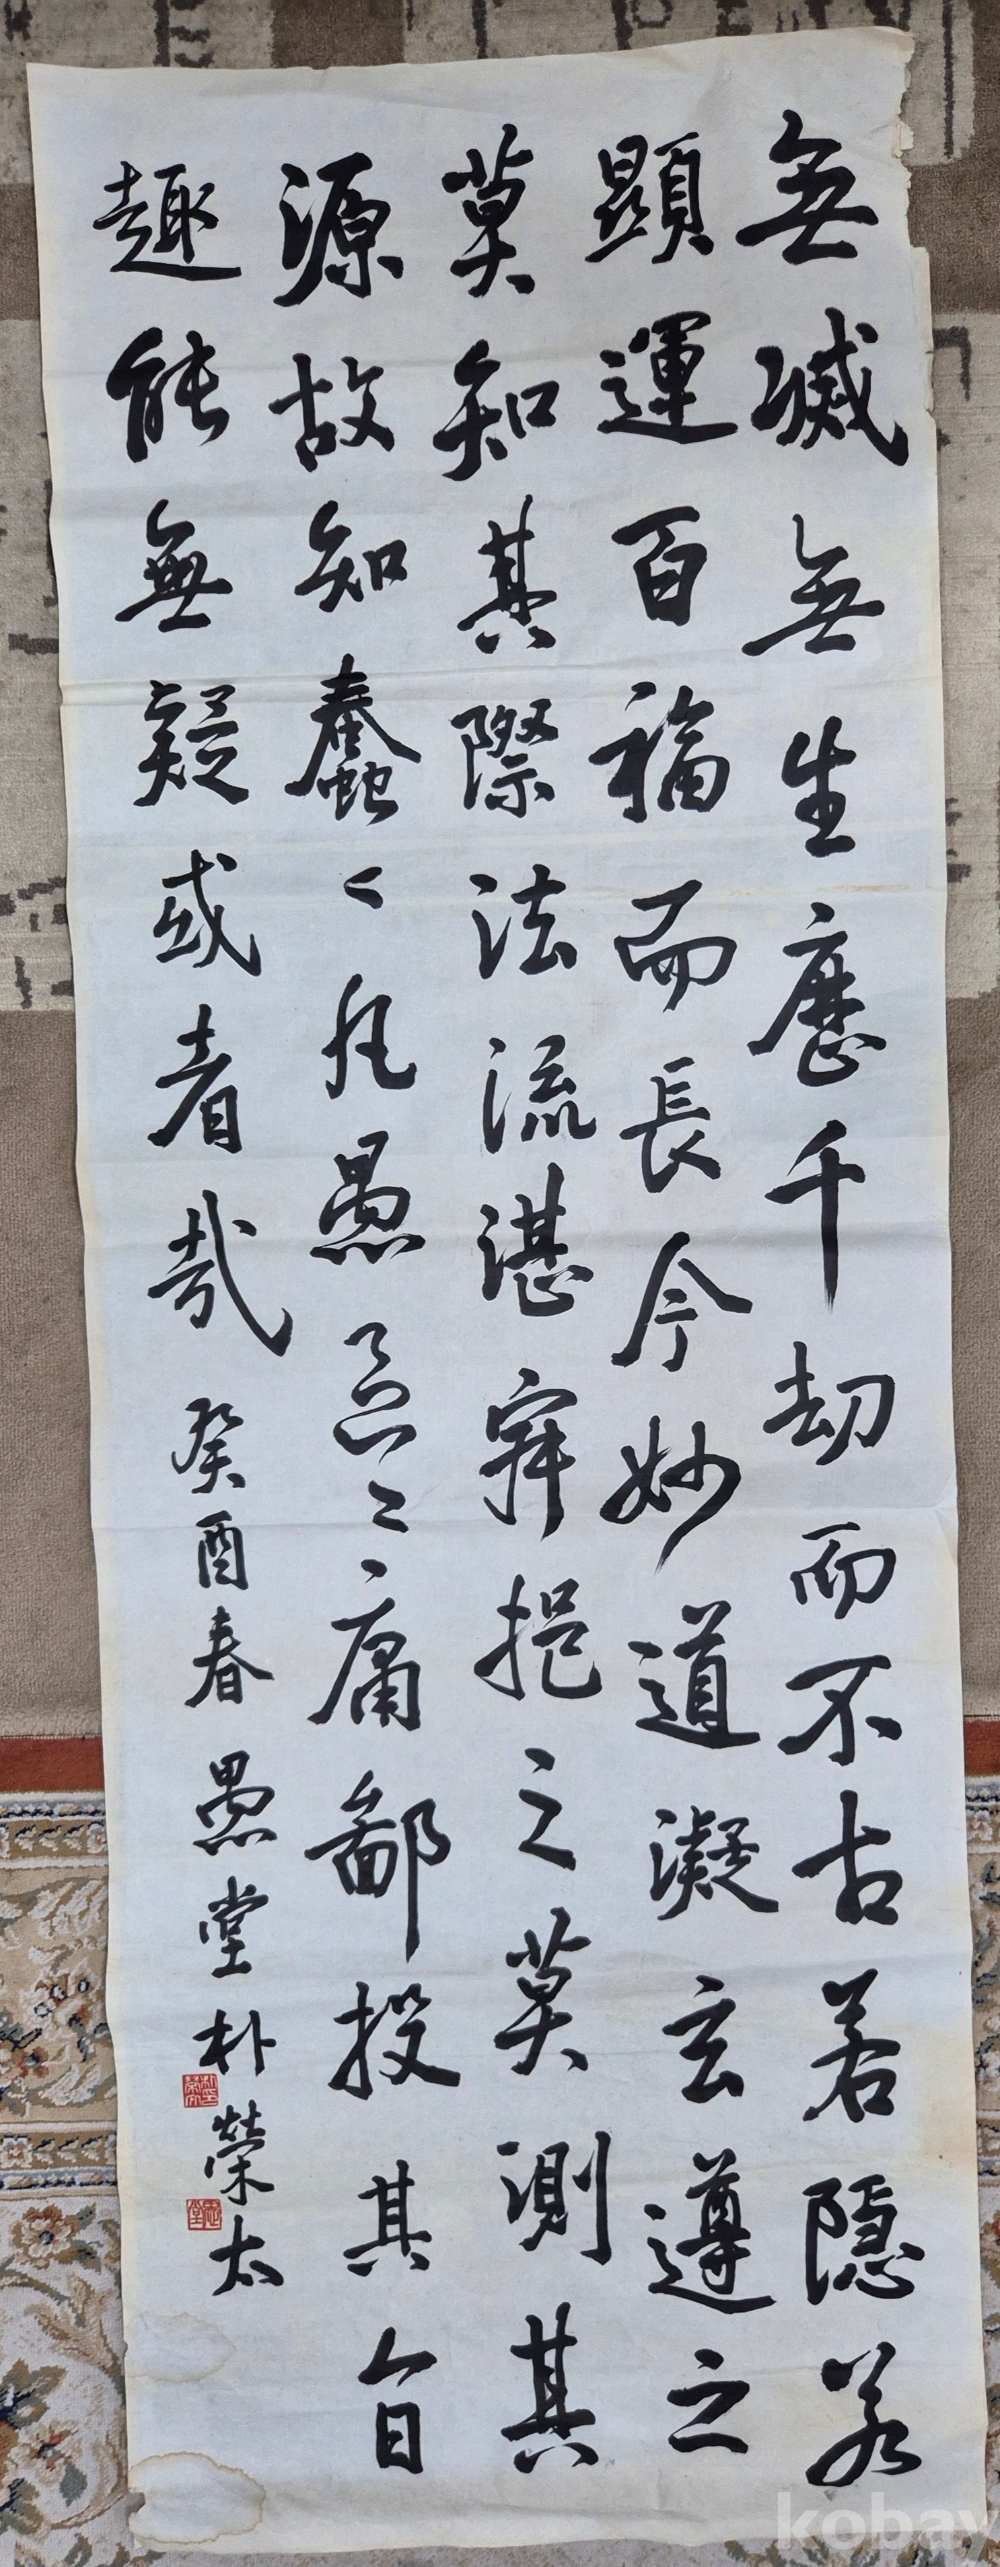 無滅無生歷千劫而不古若隱若
顯運百福而長今妙道凝玄遵之
莫知其際法流湛寂挹之莫測其
源故知蠢々凡愚區々庸鄙投其旨
趣能無疑或者哉 癸酉春 愚堂 朴榮太
kobay